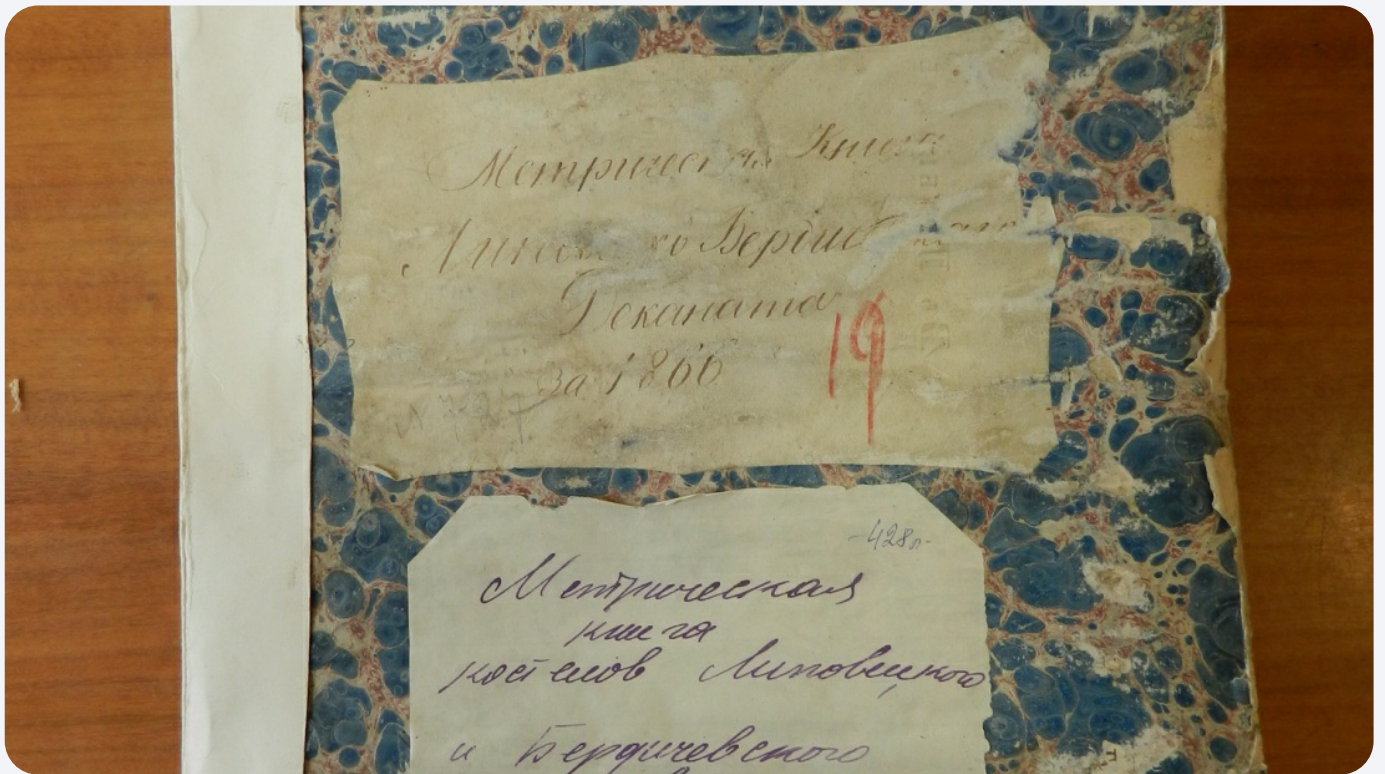 Метрическая Книга
Деканата
за 1866
19
428л-
Метрическая
книга
костелов Липовецкого
и Бердичевского